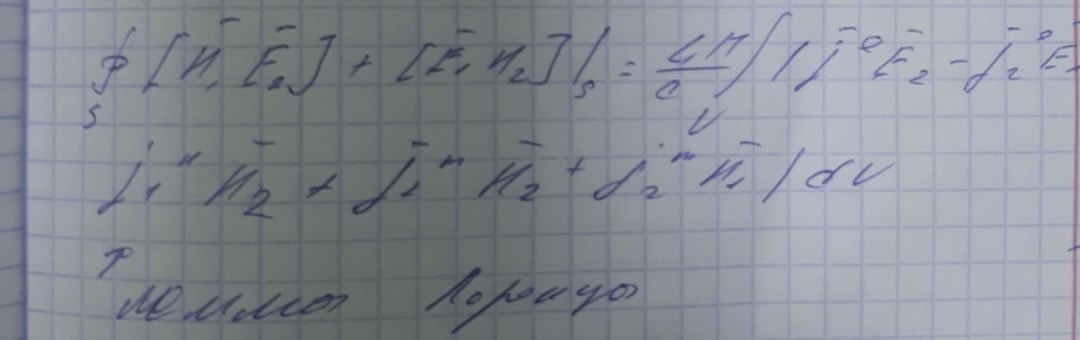 ∮_S [H̄₁ Ē₂] + [Ē₁ H̄₂]|_S = 4π/c ∫_V (j̄ᵉ Ē₂ − j₂ᵉ E
j₁ᵐ H̄₂ + j̄₁ᵐ H̄₂ + j₂ᵐ H̄₁) dV
↑
лемма Лоренца